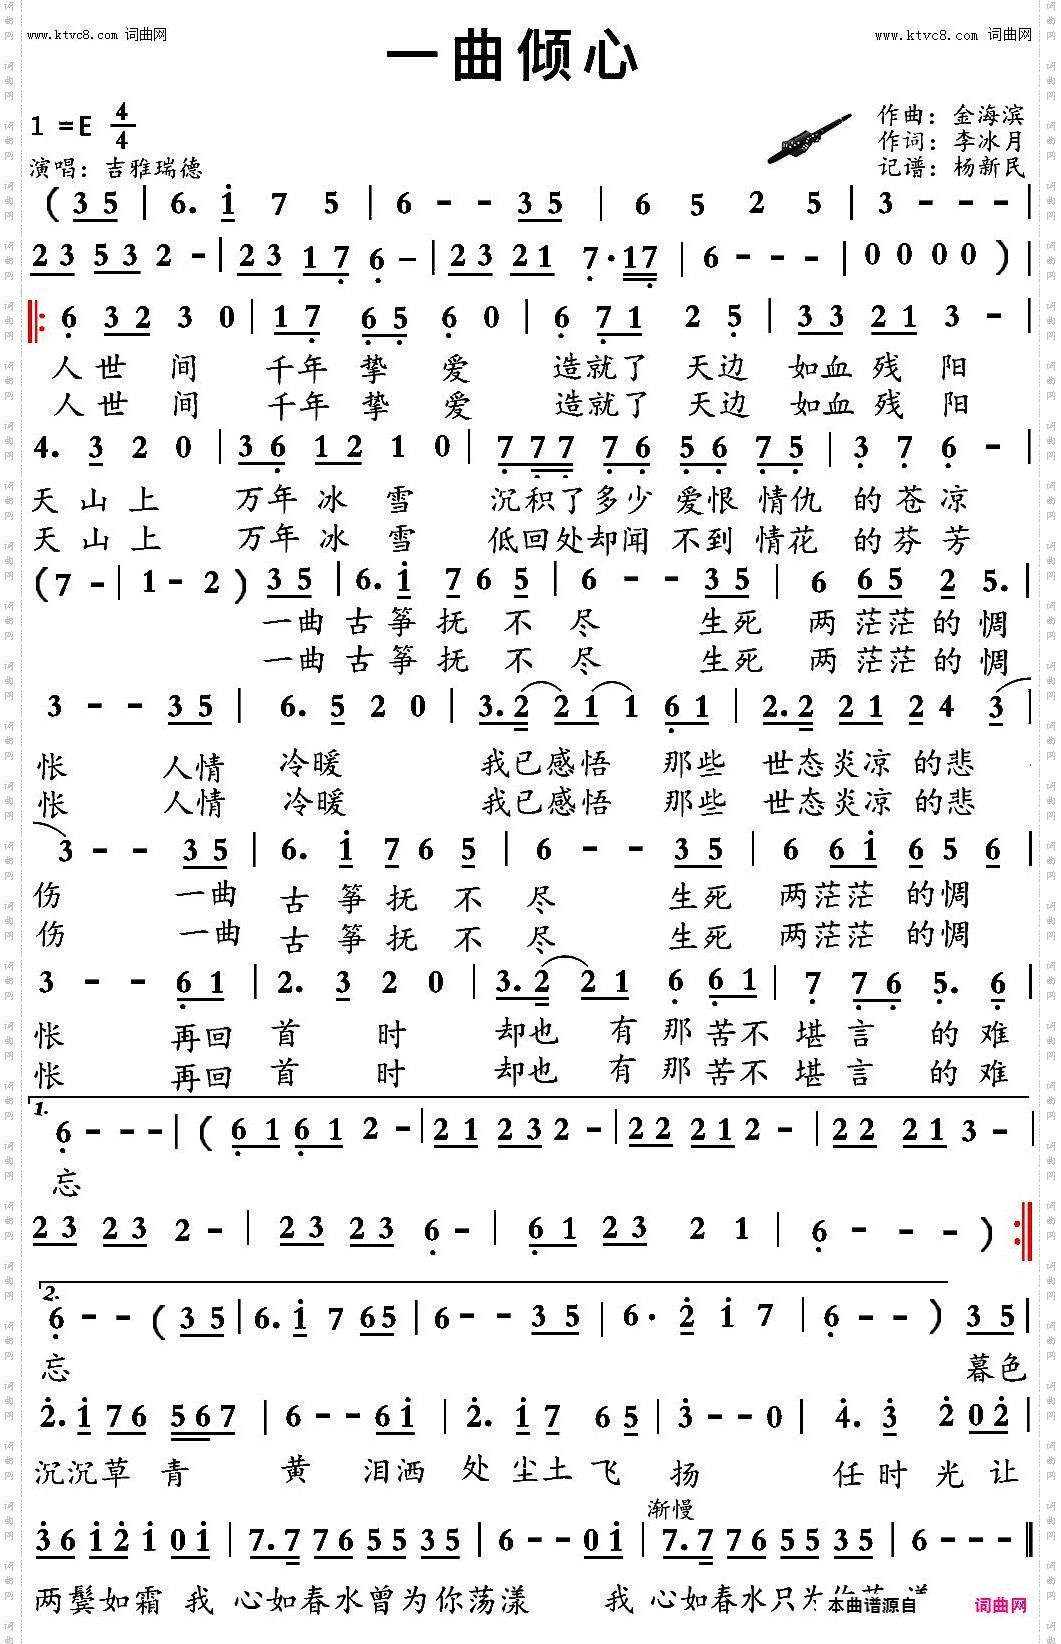 www.ktvc8.com 词曲网
www.ktvc8.com 词曲网
一曲倾心
1 =E 4/4
作曲：金海滨
作词：李冰月
演唱：吉雅瑞德
记谱：杨新民
( 3 5 | 6. i 7 5 | 6 - - 3 5 | 6 5 2 5 | 3 - - - |
2 3 5 3 2 - | 2 3 1 7 6 - | 2 3 2 1 7 · 1 7 | 6 - - - | 0 0 0 0 ) |
6 3 2 3 0 | 1 7 6 5 6 0 | 6 7 1 2 5 | 3 3 2 1 3 - |
人世间 千年挚爱 造就了天边如血残阳
人世间 千年挚爱 造就了天边如血残阳
4. 3 2 0 | 3 6 1 2 1 0 | 7 7 7 7 6 5 6 7 5 | 3 7 6 - |
天山上 万年冰雪 沉积了多少爱恨情仇的苍凉
天山上 万年冰雪 低回处却闻不到情花的芬芳
( 7 - | 1 - 2 ) 3 5 | 6. i 7 6 5 | 6 - - 3 5 | 6 6 5 2 5. |
一曲古筝抚不尽 生死两茫茫的惆
一曲古筝抚不尽 生死两茫茫的惆
3 - - 3 5 | 6. 5 2 0 | 3. 2 2 1 1 6 1 | 2. 2 2 1 2 4 3 |
怅 人情冷暖 我已感悟那些世态炎凉的悲
怅 人情冷暖 我已感悟那些世态炎凉的悲
3 - - 3 5 | 6. i 7 6 5 | 6 - - 3 5 | 6 6 i 6 5 6 |
伤 一曲古筝抚不尽 生死两茫茫的惆
伤 一曲古筝抚不尽 生死两茫茫的惆
3 - - 6 1 | 2. 3 2 0 | 3. 2 2 1 6 6 1 | 7 7 6 5. 6 |
怅 再回首时 却也有那苦不堪言的难
怅 再回首时 却也有那苦不堪言的难
1.
6 - - - | ( 6 1 6 1 2 - | 2 1 2 3 2 - | 2 2 2 1 2 - | 2 2 2 1 3 - |
忘
2 3 2 3 2 - | 2 3 2 3 6 - | 6 1 2 3 2 1 | 6 - - - )
2.
6 - - ( 3 5 | 6. i 7 6 5 | 6 - - 3 5 | 6 · 2 i 7 | 6 - - ) 3 5 |
忘 暮色
2. i 7 6 5 6 7 | 6 - - 6 i | 2. i 7 6 5 | 3 - - 0 | 4. 3 2 0 2 |
沉沉草青黄 泪洒处尘土飞扬 任时光让
渐慢
3 6 i 2 i 0 i | 7. 7 7 6 5 5 3 5 | 6 - - 0 i | 7. 7 7 6 5 5 3 5 | 6 - - ‖
两鬓如霜 我心如春水曾为你荡漾 我心如春水只为
本曲谱源自 词曲网